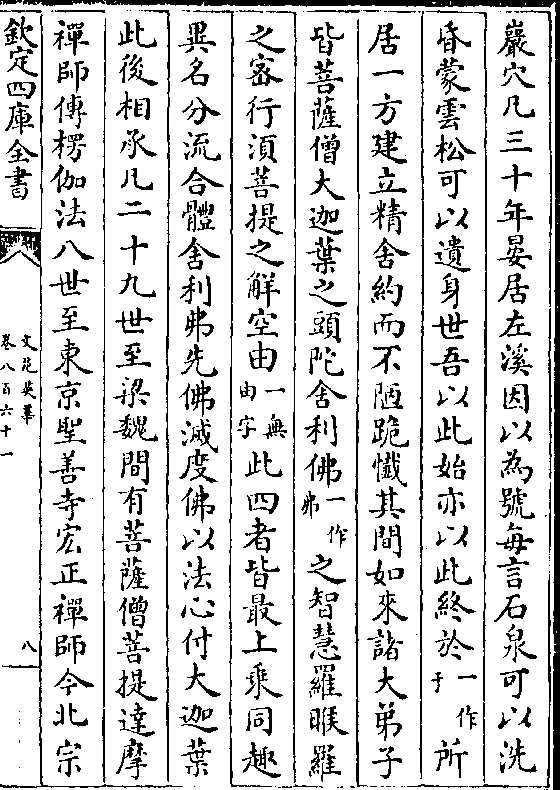 巖穴凡三十年晏居左溪因以為號每言石泉可以洗
昏蒙雲松可以遺身世吾以此始亦以此終於一作于所
居一方建立精舍約而不陋跪懴其間如來諸大弟子
皆菩薩僧大迦葉之頭陀舍利佛一作弗之智慧羅睺羅
之宻行湏菩提之觧空由一無由字此四者皆最上乘同趣
異名分流合體舍利弗先佛滅度佛以法心付大迦葉
此後相承凡二十九世至梁魏間有菩薩僧菩提達摩
禪師傳楞伽法八世至東京聖善寺宏正禪師今北宗
欽定四庫全書
文苑英華
卷八百六十一
八